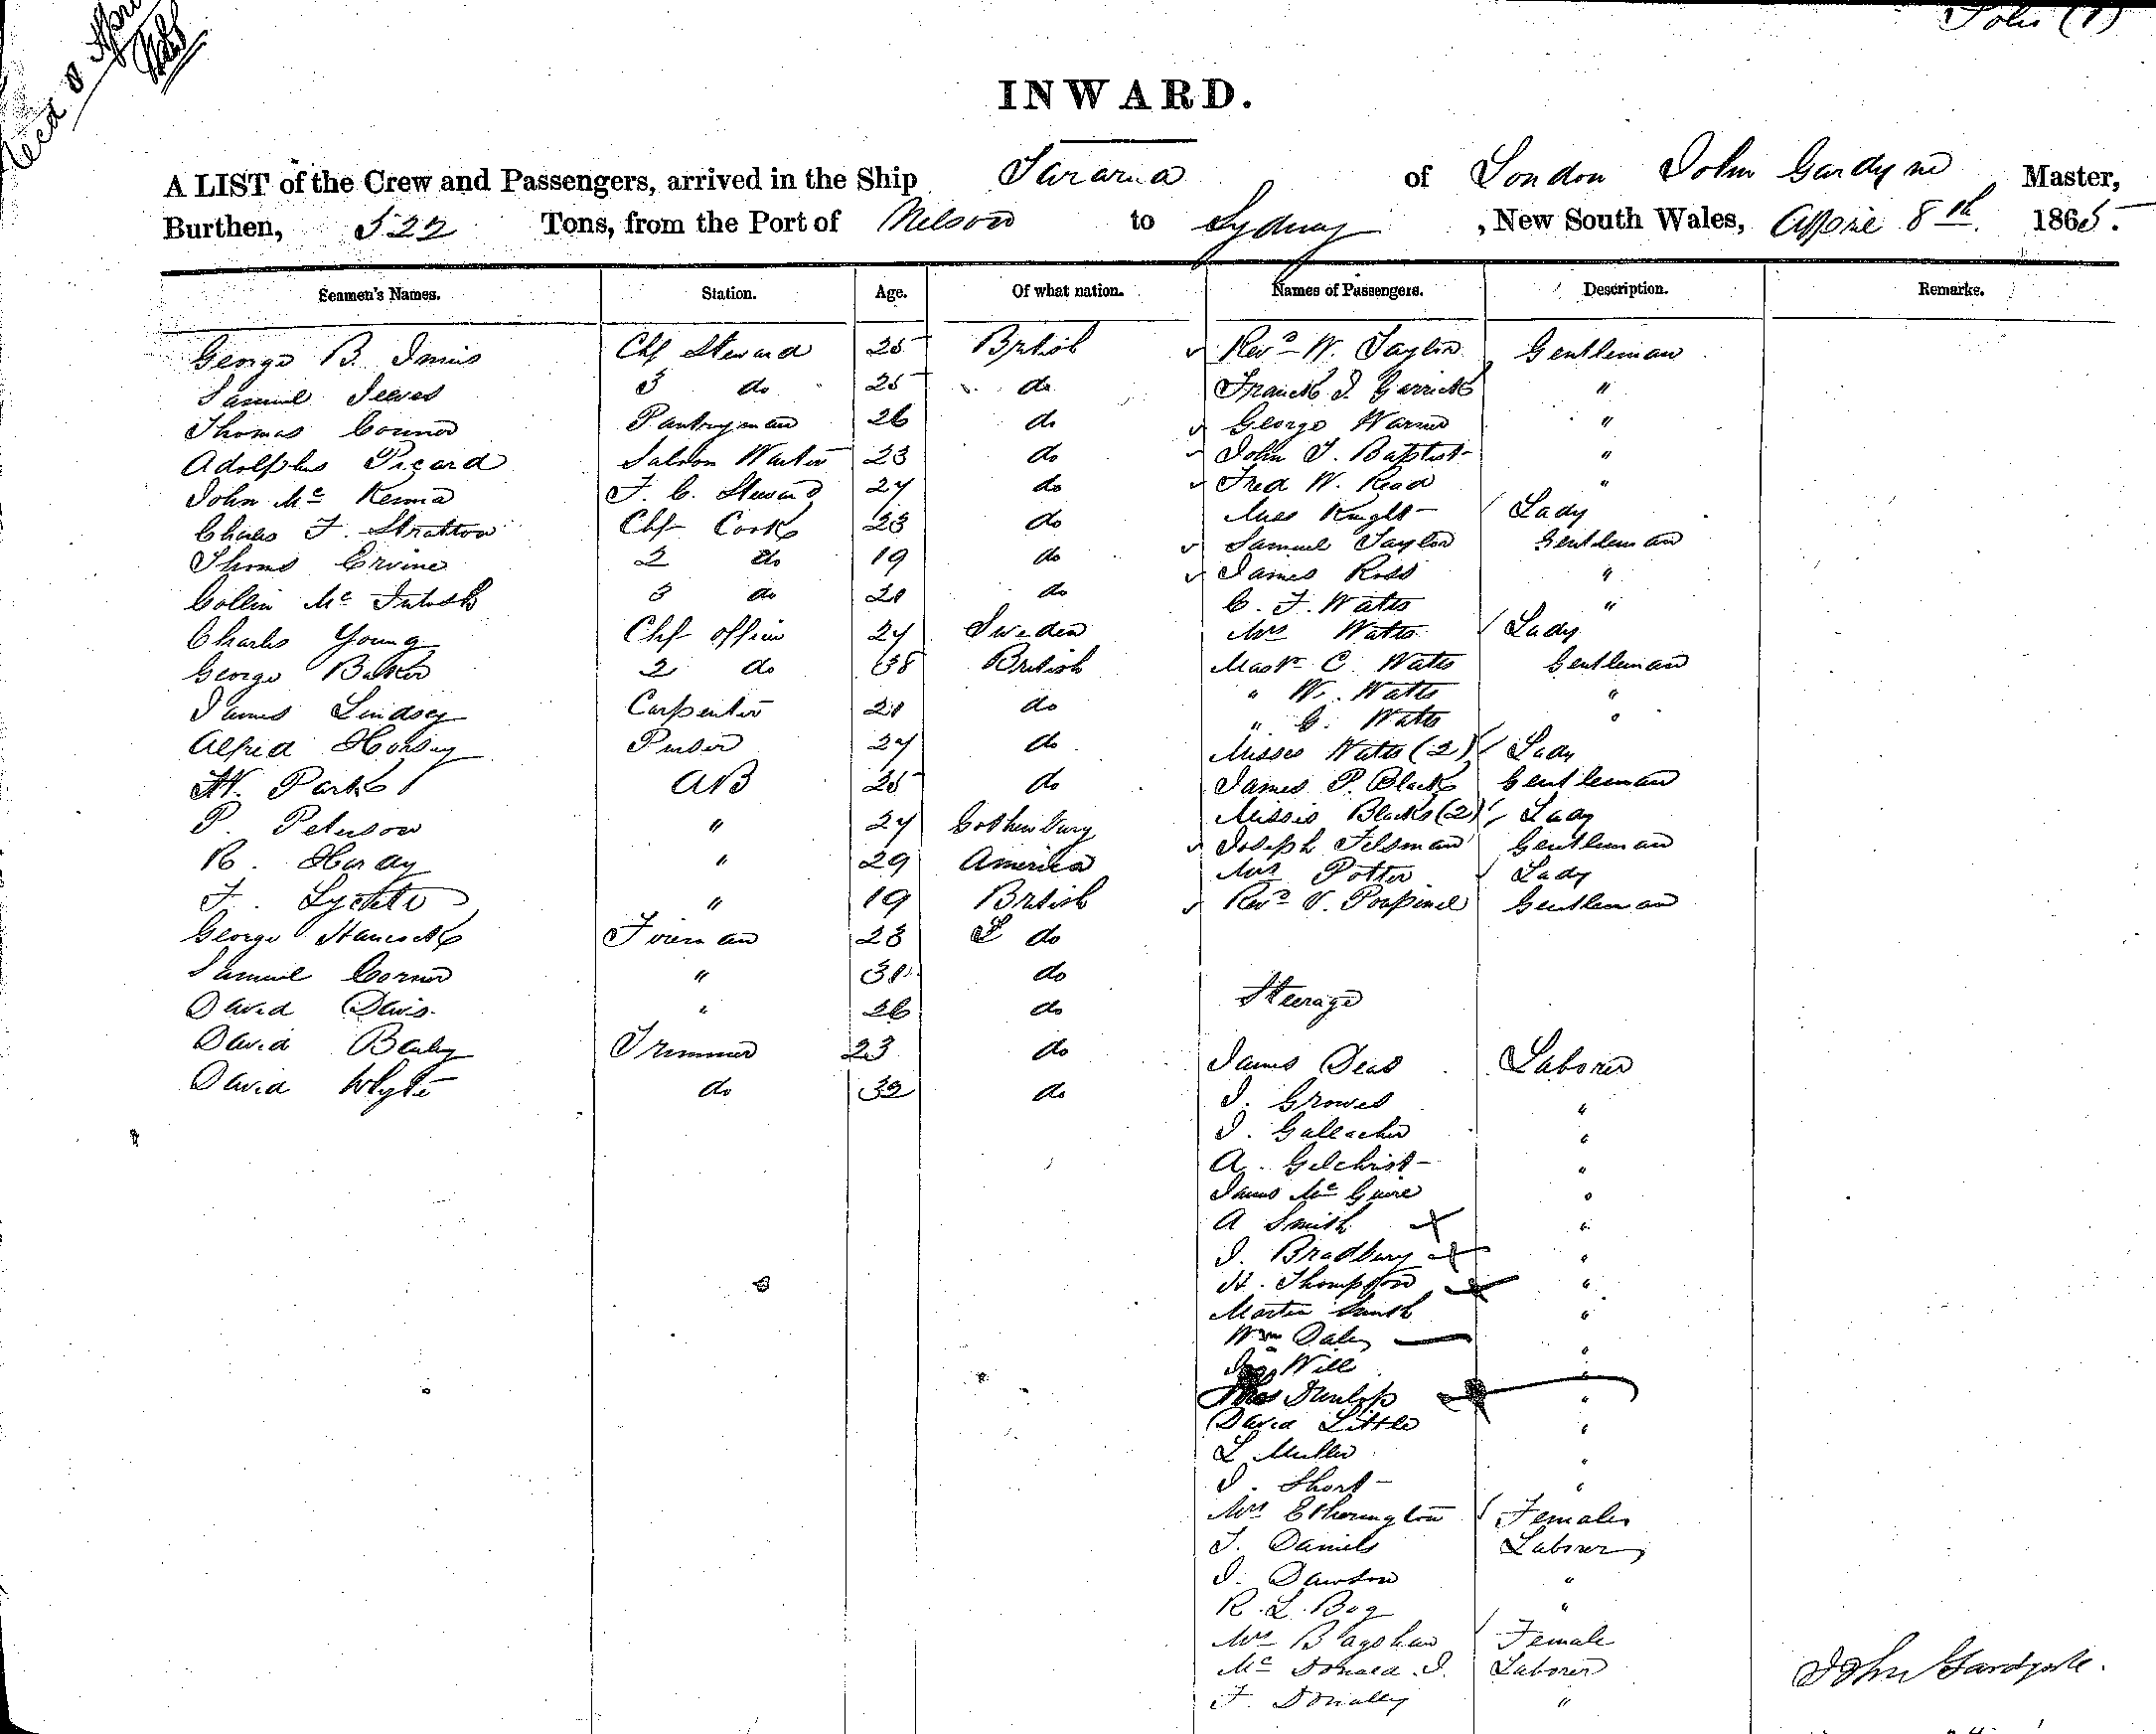 Folio (1)
Recd 8 Apri
INWARD.
A LIST of the Crew and Passengers, arrived in the Ship Tararua of London John Gardyne Master,
Burthen, 522 Tons, from the Port of Nelson to Sydney, New South Wales, April 8th 1865.
Seamen's Names. Station. Age. Of what nation. Names of Passengers. Description. Remarks.
George B. Innis Chf Steward 25 British Revd W. Taylor Gentleman
Samuel Jeeves 3 do 25 do Franck J. Garrick "
Thomas Connor Pantryman 26 do George Warner "
Adolphus Picard Saloon Waiter 23 do John T. Baptist "
John Mc Kenna F. C. Steward 24 do Fred W. Read "
Charles F. Stratton Chf Cook 23 do Miss Knight Lady
Thoms Ervine 2 do 19 do Samuel Taylor Gentleman
Collin Mc Intosh 3 do 21 do James Ross "
C. F. Watts "
Charles Young Chf officer 24 Sweden Mrs Watts Lady
George Baker 2 do 38 British Mastr C. Watts Gentleman
" W. Watts "
James Lindsey Carpenter 21 do " G. Watts "
Alfred Horsey Purser 24 do Misses Watts (2) Lady
W. Park AB 25 do James P. Black Gentleman
P. Peterson " 24 Gothenburg Missis Blacks (2) Lady
Joseph Tilsman Gentleman
R. Haray " 29 America Mrs Potter Lady
F. " 19 British Revd V. Poupinel Gentleman
George Hancock Fireman 23 do
Samuel Cornor " 30 do
Steerage
David Davis " 26 do
David Baily Trimmer 23 do James Deas Laborer
David Whyte do 32 do J. Growes "
J. Galeacher "
A. Gilchrist "
James Mc Guire "
A Smith "
J. Bradbury "
H. Thompson "
Martin Smith "
Wm Daley "
Will "
Thos Dunlop "
David Little "
L Muller "
J. Short "
Mrs Etherington Females
T. Daniels Laborer
J. Dawson "
R. L. Bog "
Mrs Bagshaw Female
Mc Donald. J. Laborer
F. Donally "
John Gardyne.